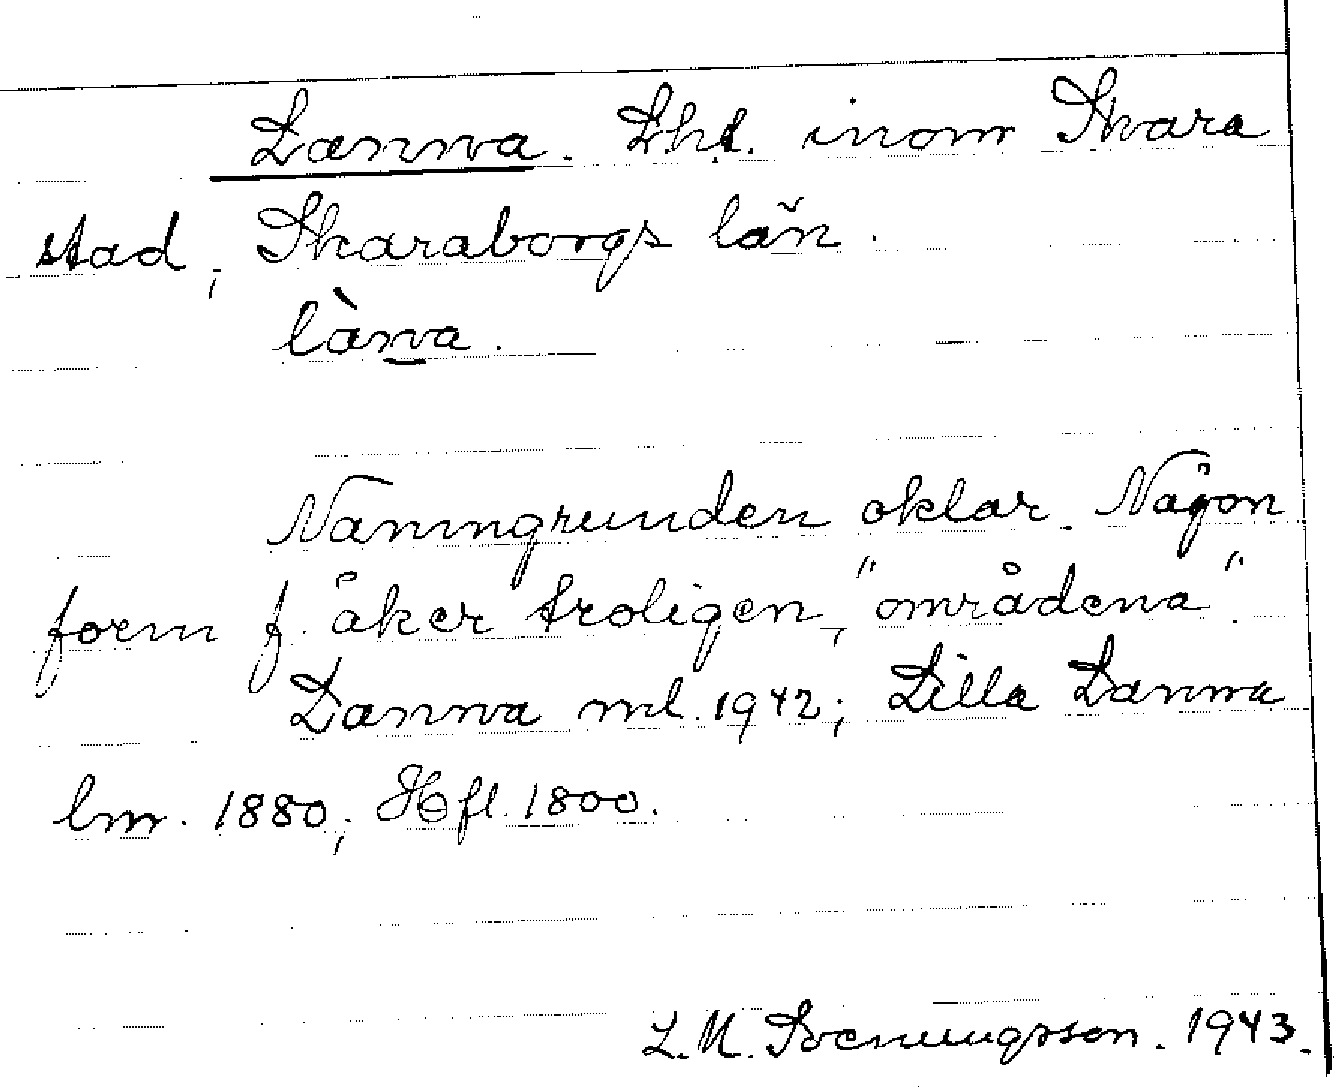 Lanna. Lht. inom Skara
stad, Skaraborgs län.
làna.
Namngrunden oklar. Någon
form f. åker troligen, "områdena".
Lanna ml. 1942; Lilla Lanna
lm. 1880; Hfl. 1800.
L.M. Svenungsson. 1943.